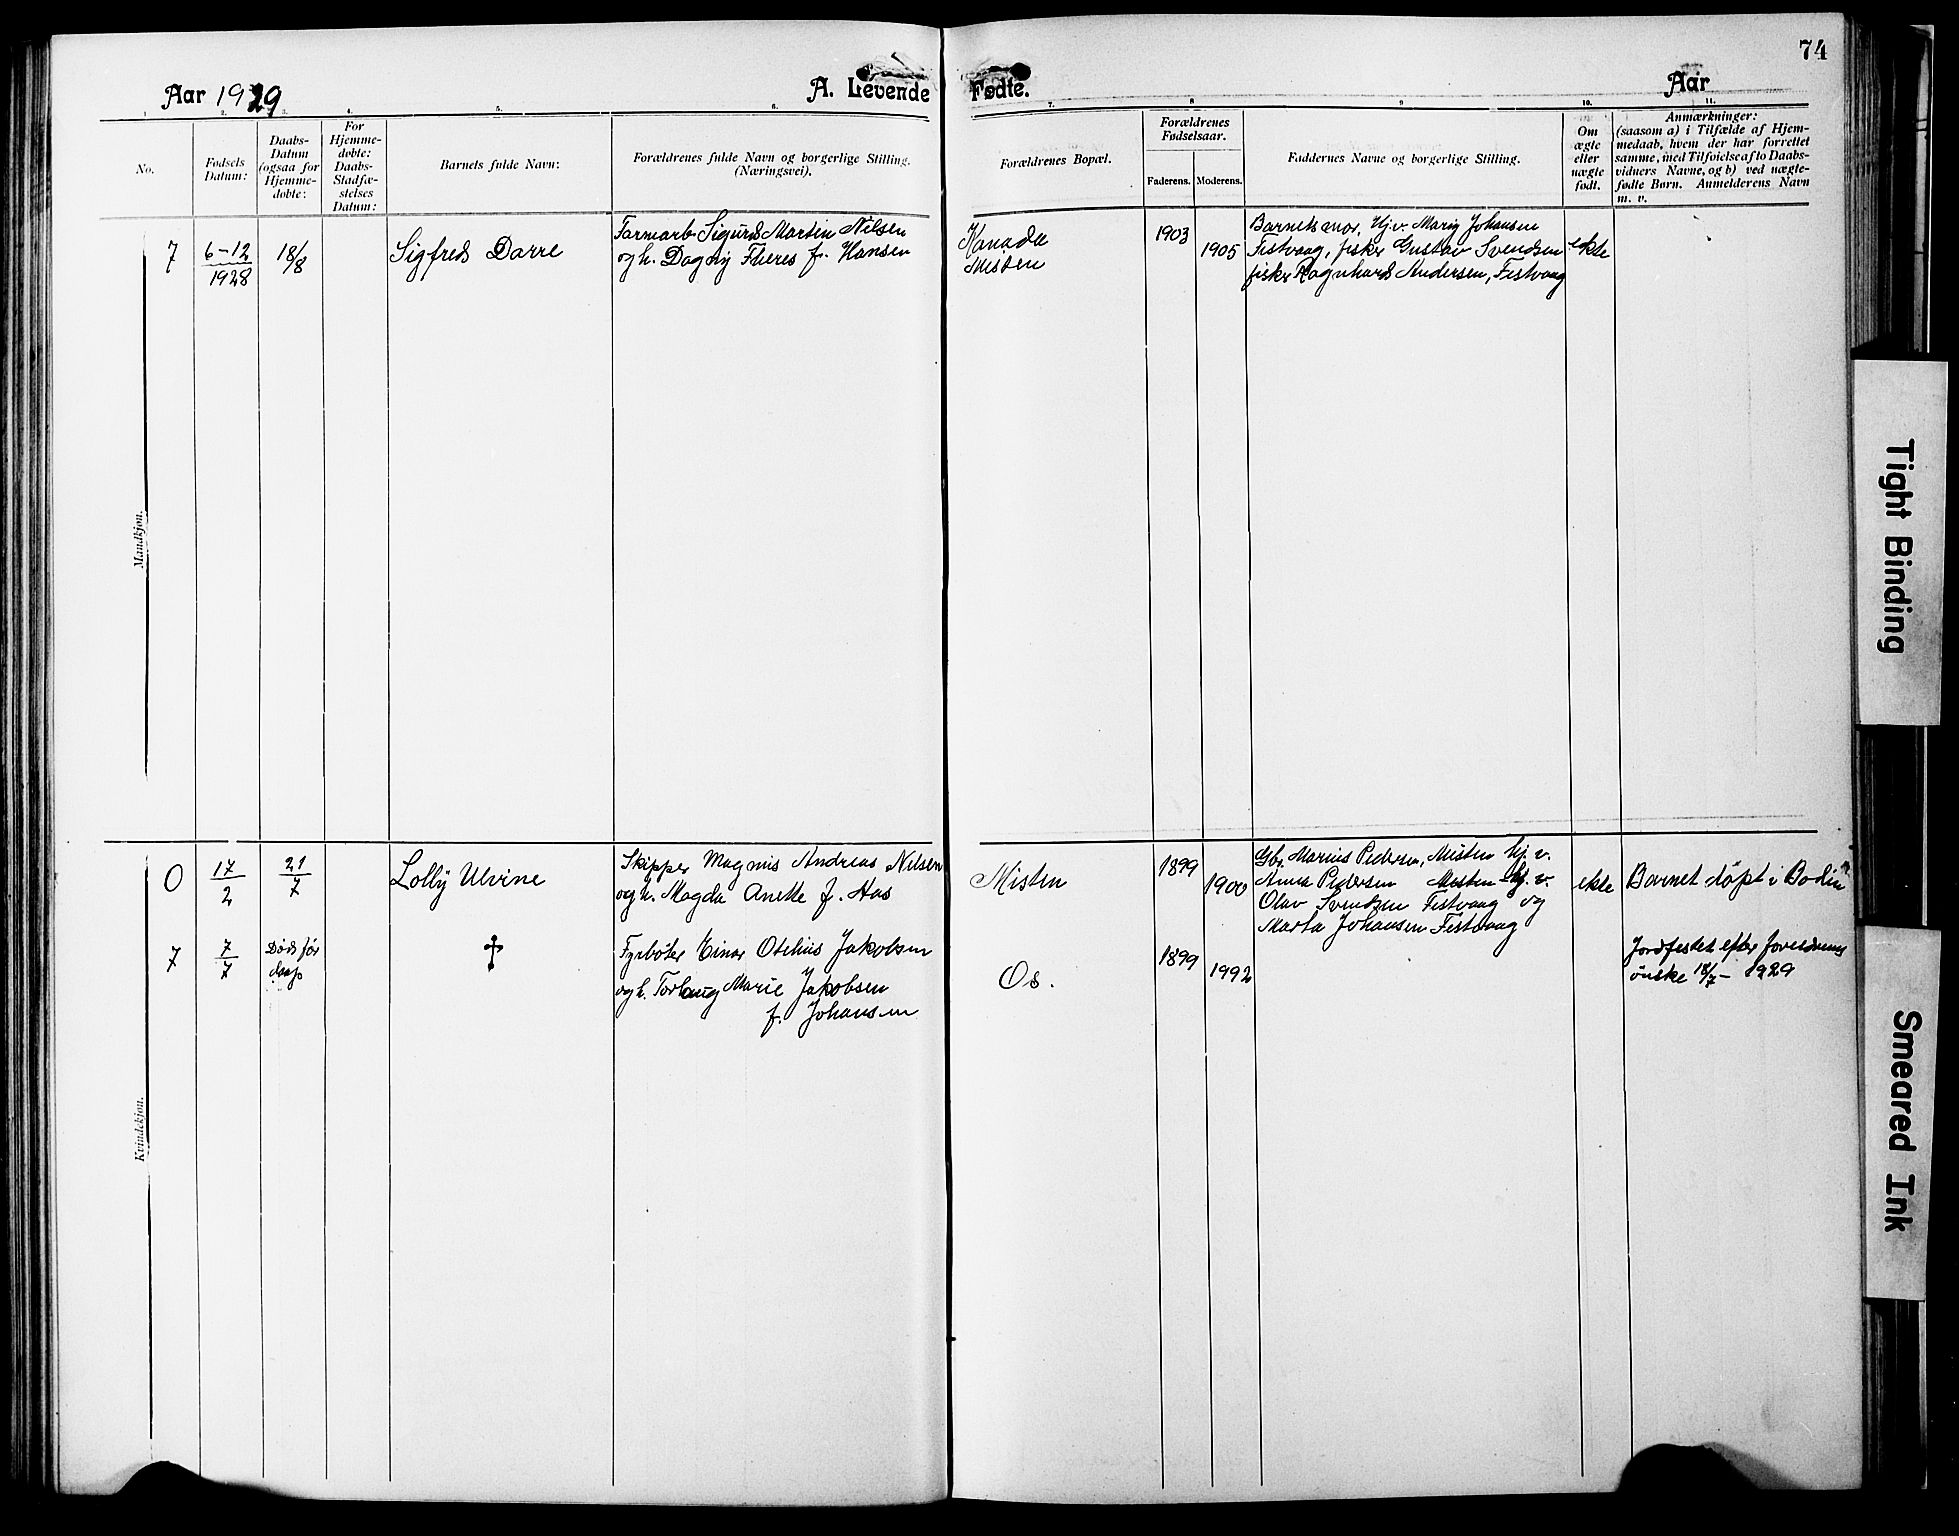 74
Aar 1929
A. Levende
Fødte.
Aar
1
2.
3.
4.
5.
6.
7.
8
9
10.
11.
No.
Fødsels
Datum:
Daabs-
Datum
(ogsaa for
Hjemme-
døbte:
For
Hjemme-
døbte:
Daabs-
Stadfæ-
stelses
Datum:
Barnets fulde Navn:
Forældrenes fulde Navn og borgerlige Stilling.
(Næringsvei).
Forældrenes Bopæl.
Forældrenes
Fødselsaar.
Faderens.
Moderens.
Faddernes Navne og borgerlige Stilling.
Om
ægte
eller
uægte
født.
Anmærkninger:
(saasom a) i Tilfælde af Hjem-
medaab, hvem der har forrettet
samme, med Tilføielse af to Daabs-
vidners Navne, og b) ved uægte-
fødte Børn. Anmelderens Navn
m. v.
Mandkjøn.
7
6-12
1928
18/8
Sigfred Dorre
Farmarb. Sigurd Martin Nilsen
og h. Dagny Theres f. Hansen
Kanada
Misten
1903
1905
Barnets mor, Hj.v. Marig Johansen
Festvaag, fisker Gustav Svendsen
fisker Ragnhard Andersen, Festvaag
ekte
Kvindekjøn.
0
17
2
21
7
Lolly Ulvine
Skipper Magnus Andreas Nilsen
og h. Magda Anette f. Has
Misten
1899
1900
Gbr. Marius Pedersen, Misten hj. v.
Anna Pedersen Misten hj. v.
Olav Svendsen Festvaag og
Marta Johansen Festvaag
ekte
Barnet döpt i Bodin
7
7
7
Død før
daap
✝
Fyrböter Einar Otelius Jakobsen
og h. Torbaug Marie Jakobsen
f. Johansen
Os.
1899
1992
Jordfestet efter foreldrenes
önske 18/7 - 1929
Tight Binding
Smeared Ink